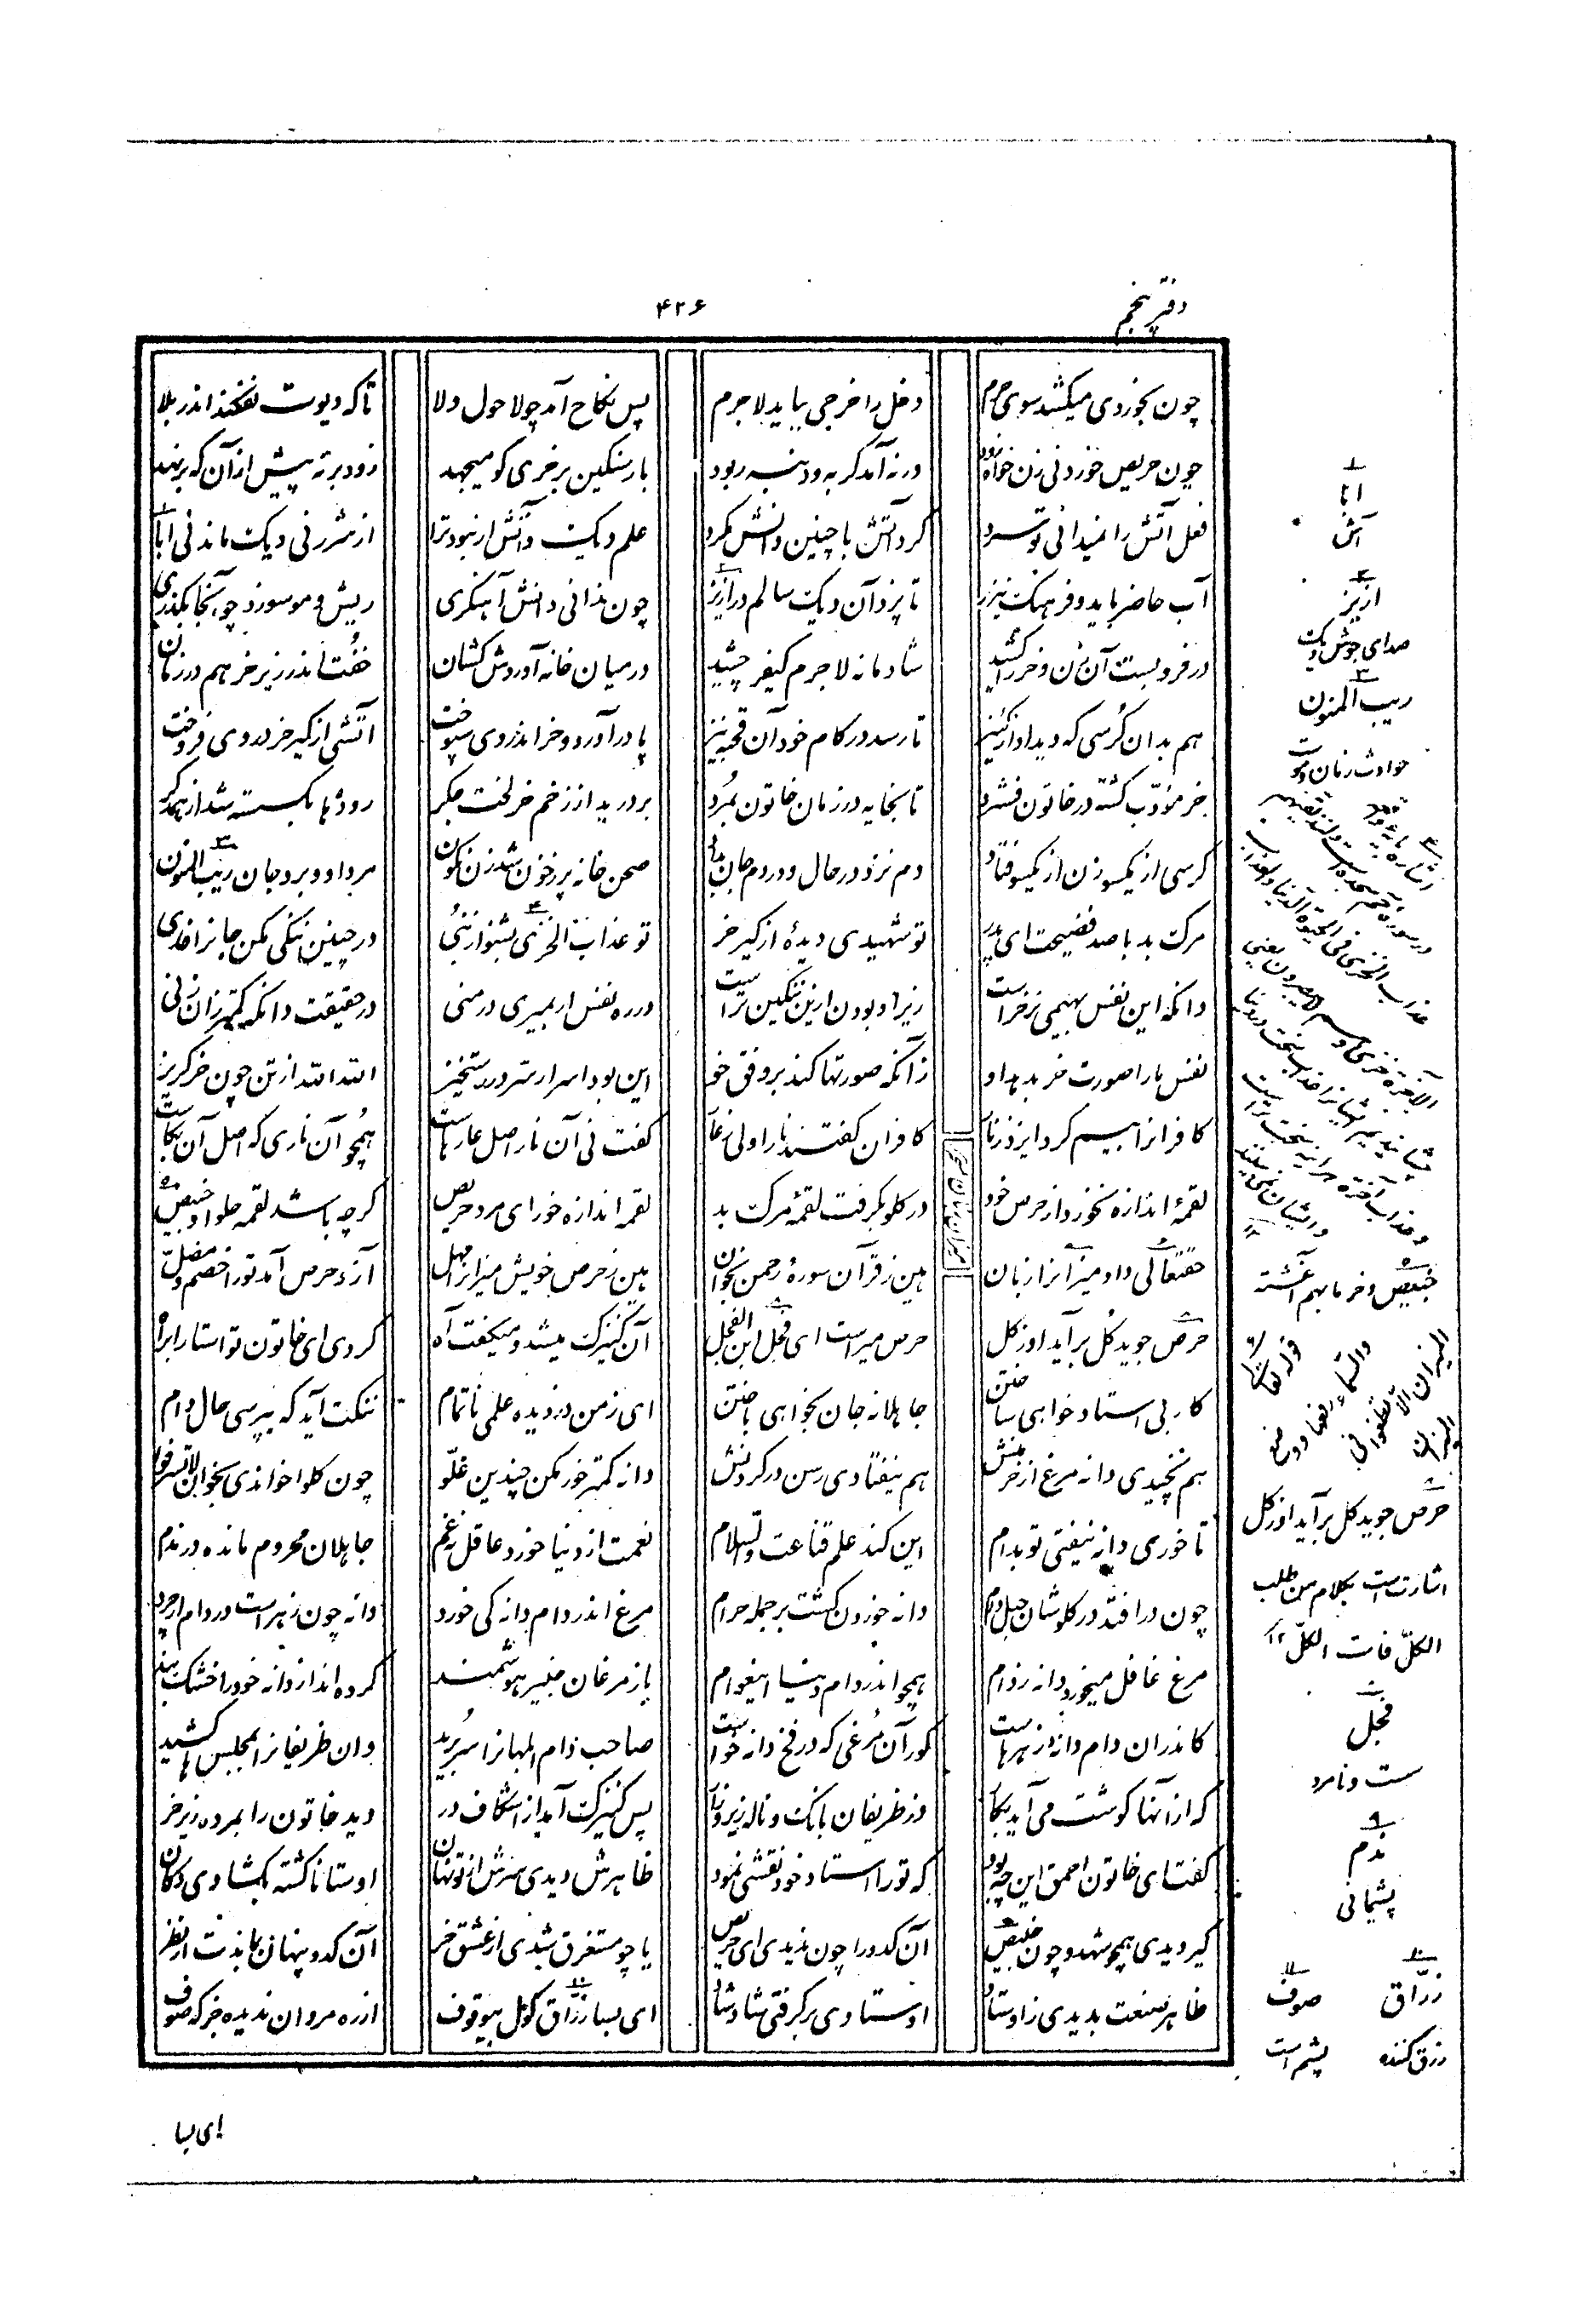 دفتر پنجم
۴۲۶
چون بخوردی میکشد سوی حرم دخل را خرجی بباید لاجرم پس نکاح آمد چو لاحول ولا تا که دیوت نفکند اندر بلا
چون حریص خوردنی زن خواه زود ورنه آمد کربه و دنبه ربود بار سنکین بر خری کو میجهد زود بر نه پیش از آن که بر نهد
فعل آتش را نمیدانی تو سرد کرد آتش با چنین دانش مکرد علم دیک و آتش ار نبود ترا از شرر نی دیک ماند نی ابا
آب حاضر باید و فرهنک نیز تا پزد آن دیک سالم در ازیز چون ندانی دانش آهنکری ریش و مو سوزد چو آنجا بکذری
در فرو بست آن زن و خر را کشید شادمانه لاجرم کیفر چشید در میان خانه آوردش کشان خفت اندر زیر خر هم در زمان
هم بدان کرسی که دید او از کنیز تا رسد در کام خود آن قحبه نیز پا در آورد و خر اندر وی سپوخت آتشی از کیر خر در وی فروخت
خر مؤدب کشته در خاتون فشرد تا بخایه در زمان خاتون بمرد بر درید از زخم خر لخت جکر رودها بکسسته شد از همدکر
کرسی از یکسو زن از یکسو فتاد دم نزد در حال و در دم جان بداد صحن خانه پر ز خون شد زن نکون مرد او و برد جان ریب المنون
مرک بد با صد فضیحت ای پدر تو شهیدی دیدهٔ از کیر خر تو عذاب الخزی بشنو از نبی در چنین ننکی مکن جان را فدی
دانکه این نفس بهیمی نر خر است زیر او بودن از این ننکین تر است در ره نفس ار بمیری در منی در حقیقت دانکه کمتر زان زنی
نفس ما را صورت خر بدهد او زآنکه صورتها کند بر وفق خو این بود اسرار سر در رستخیز الله الله از تن چون خر کریز
کافرانرا بیم کرد ایزد ز نار کافران کفتند نار اولی ز عار کفت نی آن نار اصل عارهاست همچو آن ناری که اصل آن بکاست
لقمهٔ اندازه نخورد از حرص خود در کلو بکرفت لقمهٔ مرک بد لقمه اندازه خور ای مرد حریص کرچه باشد لقمه حلوا و خبیص
حقتعالی داد میزانرا زبان هین ز قرآن سورهٔ رحمن بخوان هین ز حرص خویش میزانرا مهل آز و حرص آمد تو را خصم و مضل
حرص جوید کل برآید او ز کل حرص میراست ای فجل ابن الفجل آن کنیزک میشد و میکفت آه کردی ای خاتون تو استا را براه
کار بی استاد خواهی ساختن جاهلانه جان بخواهی باختن ای ز من دزدیده علمی ناتمام ننکت آید که بپرسی حال دام
هم نچیدی دانه مرغ از خرمنش هم نیفتادی رسن در کردنش دانه کمتر خور مکن چندین غلو چون کلوا خواندی بخوان لاتسرفوا
تا خوری دانه نیفتی تو بدام این کند علم قناعت والسلام نعمت از دنیا خورد عاقل نه غم جاهلان محروم مانده در ندم
چون در افتد در کلوشان حبل دام دانه خوردن کشت بر جمله حرام مرغ اندر دام دانه کی خورد دانه چون زهر است در دام ار چرد
مرغ غافل میخورد دانه ز دام همچو اندر دام دنیا این عوام باز مرغان خبیر هوشمند کرده اند از دانه خود را خشک بند
کاندران دام و دانه زهرهاست کور آن مرغی که در فخ دانه خواست صاحب دام ابلهانرا سر برید وان ظریفانرا بمجلس ها کشید
که از آنها کوشت می آید بکار وز ظریفان بانک و ناله زیر و زار پس کنیزک آمد از اشکاف در دید خاتون را بمرده زیر خر
کفت ای خاتون احمق این چه بود که تو را استاد خود نقشی نمود ظاهرش دیدی سرش از تو نهان اوستا ناکشته بکشادی دکان
کیر دیدی همچو شهد و چون خبیص آن کدو را چون ندیدی ای حریص یا چو مستغرق شدی از عشق خر آن کدو پنهان بماندت از نظر
ظاهر صنعت بدیدی ز اوستاد اوستادی بر کرفتی شاد شاد ای بسا زراق کول بیوقوف از ره مردان ندیده جز که صوف
۱
ابا
آش
۲
ازیز
صدای جوش دیک
۳
ریب المنون
حوادث زمان و موت
خبیص و خرما بهم آغشته
والسماء رفعها و وضع
المیزان الا تطغوا فی
المیزان
حرص جوید کل برآید او ز کل
اشارتست بکلام من طلب
الکل فات الکل ۱۲
فجل
سست و نامرد
۹
ندم
پشیمانی
۱۰
زراق
زرق کننده
۱۱
صوف
پشم است
ای بسا